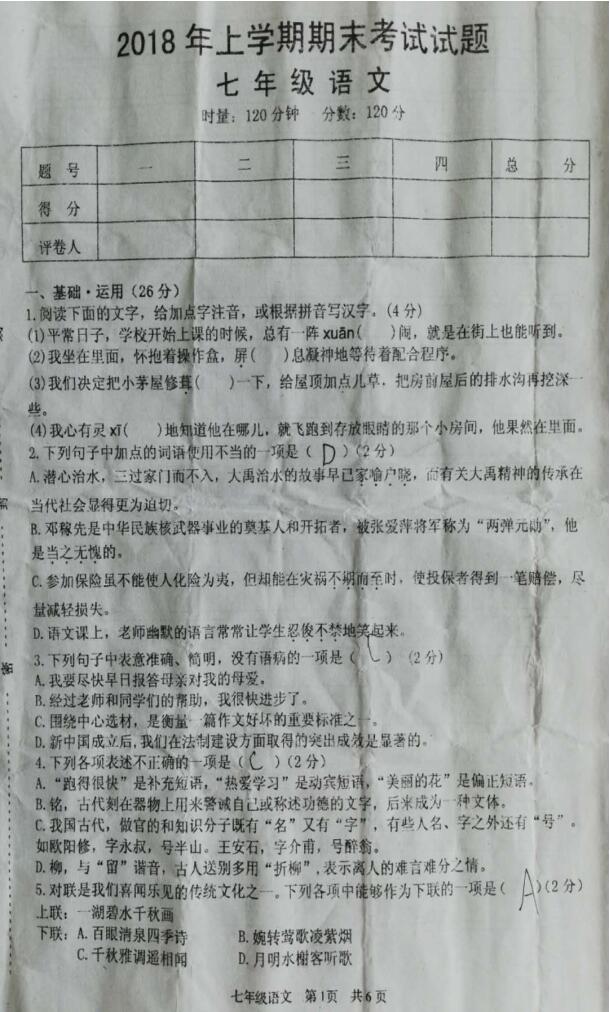 2018年上学期期末考试试题
七年级语文
时量：120分钟 分数：120分
题 号 一 二 三 四 总 分
得 分
评卷人
一、基础·运用（26分）
1.阅读下面的文字，给加点字注音，或根据拼音写汉字。(4分)
(1)平常日子，学校开始上课的时候，总有一阵xuān( )闹，就是在街上也能听到。
(2)我坐在里面，怀抱着操作盒，屏( )息凝神地等待着配合程序。
(3)我们决定把小茅屋修葺( )一下，给屋顶加点儿草，把房前屋后的排水沟再挖深一
些。
(4)我心有灵xī( )地知道他在哪儿，就飞跑到存放眼睛的那个小房间，他果然在里面。
2.下列句子中加点的词语使用不当的一项是（ D ）(2分)
A.潜心治水，三过家门而不入，大禹治水的故事早已家喻户晓，而有关大禹精神的传承在
当代社会显得更为迫切。
B.邓稼先是中华民族核武器事业的奠基人和开拓者，被张爱萍将军称为“两弹元勋”，他
是当之无愧的。
C.参加保险虽不能使人化险为夷，但却能在灾祸不期而至时，使投保者得到一笔赔偿，尽
量减轻损失。
D.语文课上，老师幽默的语言常常让学生忍俊不禁地笑起来。
3.下列句子中表意准确、简明，没有语病的一项是（ C ）(2分)
A.我要尽快早日报答母亲对我的母爱。
B.经过老师和同学们的帮助，我很快进步了。
C.围绕中心选材，是衡量一篇作文好坏的重要标准之一。
D.新中国成立后，我们在法制建设方面取得的突出成效是显著的。
4.下列各项表述不正确的一项是（ C ）(2分)
A.“跑得很快”是补充短语，“热爱学习”是动宾短语，“美丽的花”是偏正短语。
B.铭，古代刻在器物上用来警诫自己或称述功德的文字，后来成为一种文体。
C.我国古代，做官的和知识分子既有“名”又有“字”，有些人名、字之外还有“号”。
如欧阳修，字永叔，号半山。王安石，字介甫，号醉翁。
D.柳，与“留”谐音，古人送别多用“折柳”，表示离人的难言难分之情。
5.对联是我们喜闻乐见的传统文化之一。下列各项中能够作为下联的一项是（ A ）(2分)
上联：一湖碧水千秋画
下联：A.百眼清泉四季诗 B.婉转莺歌凌紫烟
C.千秋雅调遥相闻 D.月明水榭客听歌
七年级语文 第1页 共6页